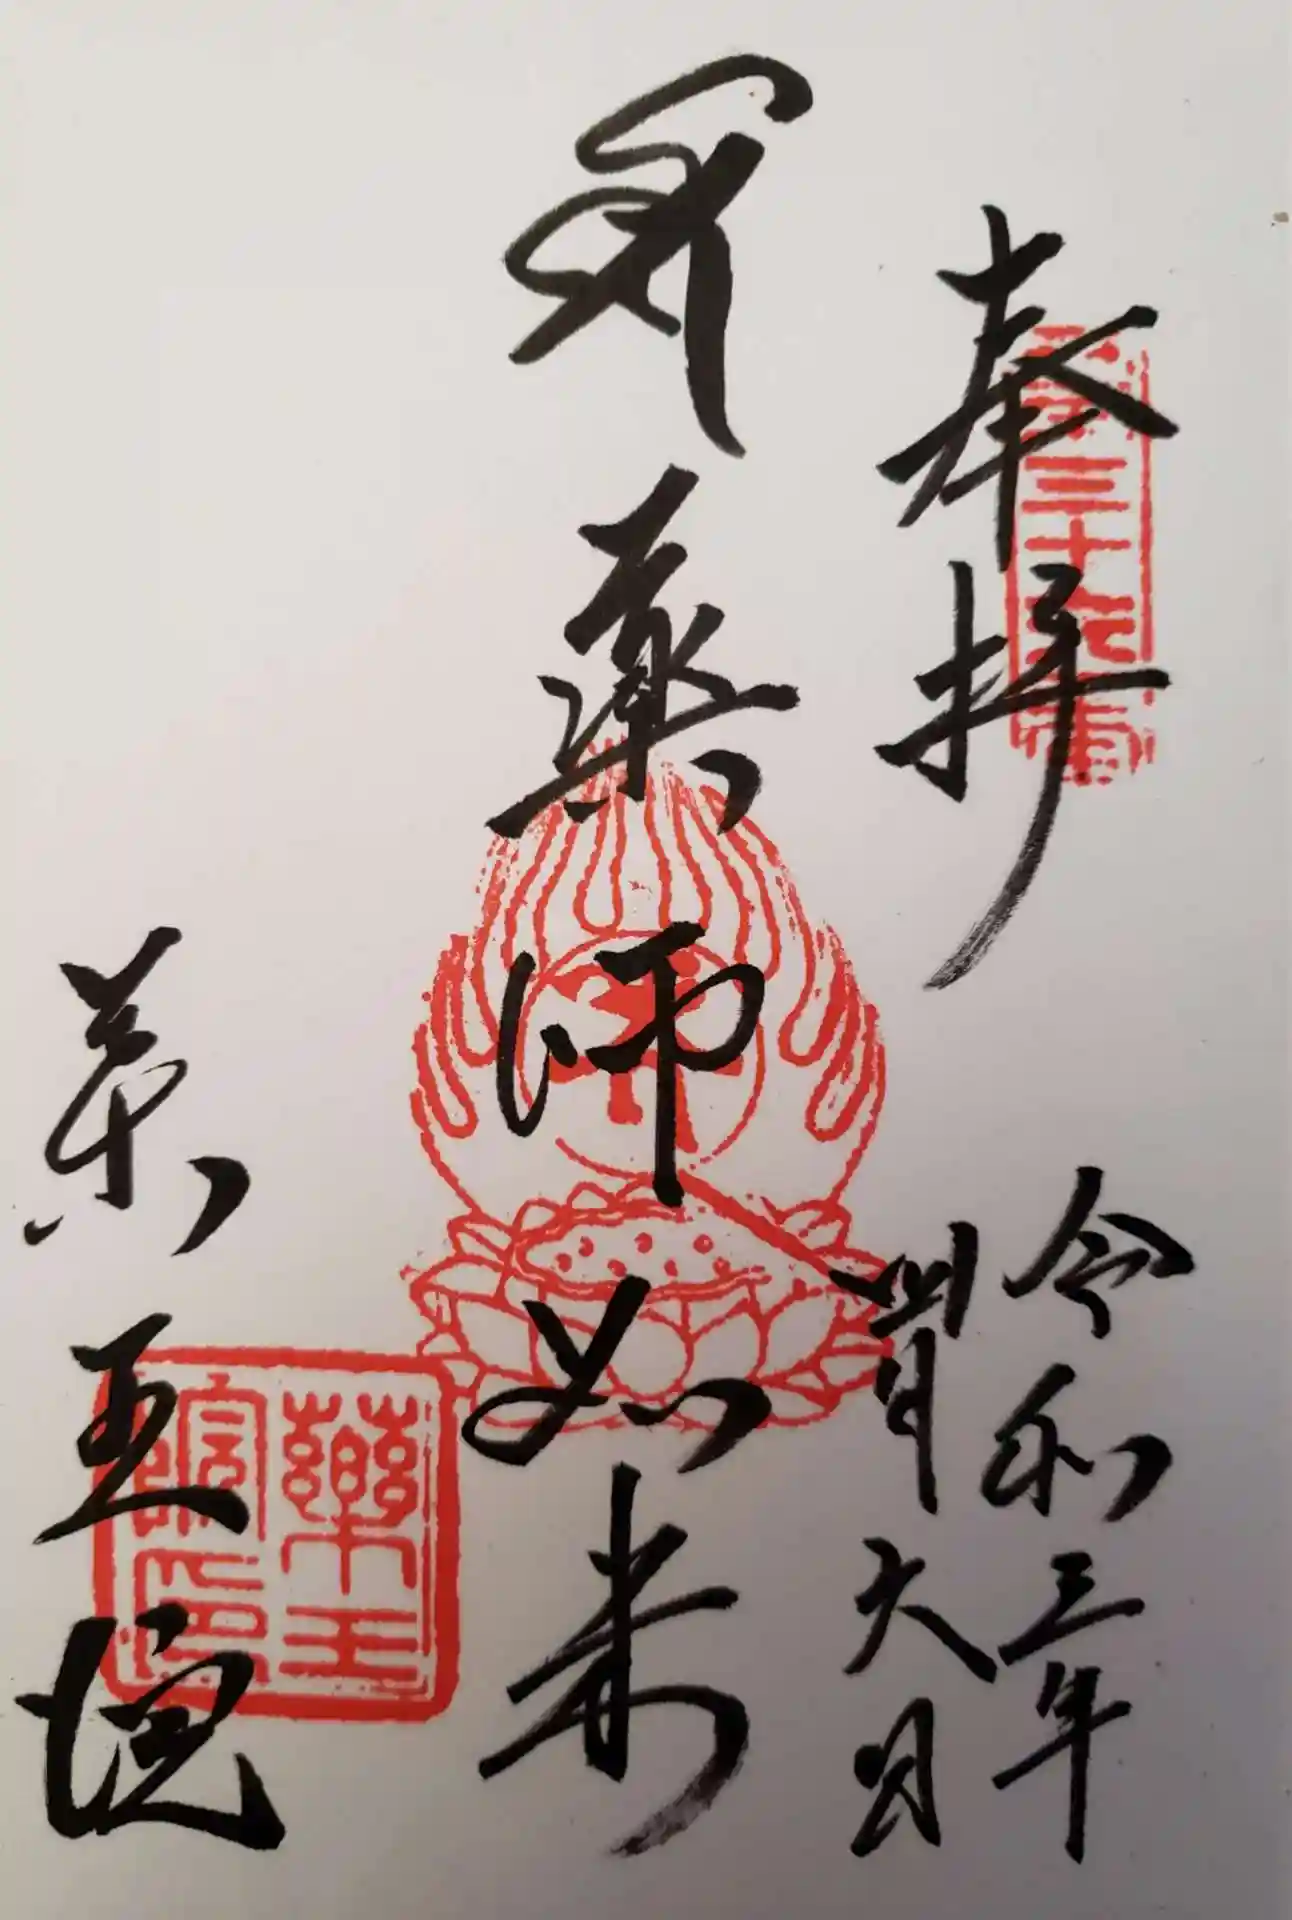 奉拝
令和三年
四月六日
薬師如来
薬王院
藥王
院印